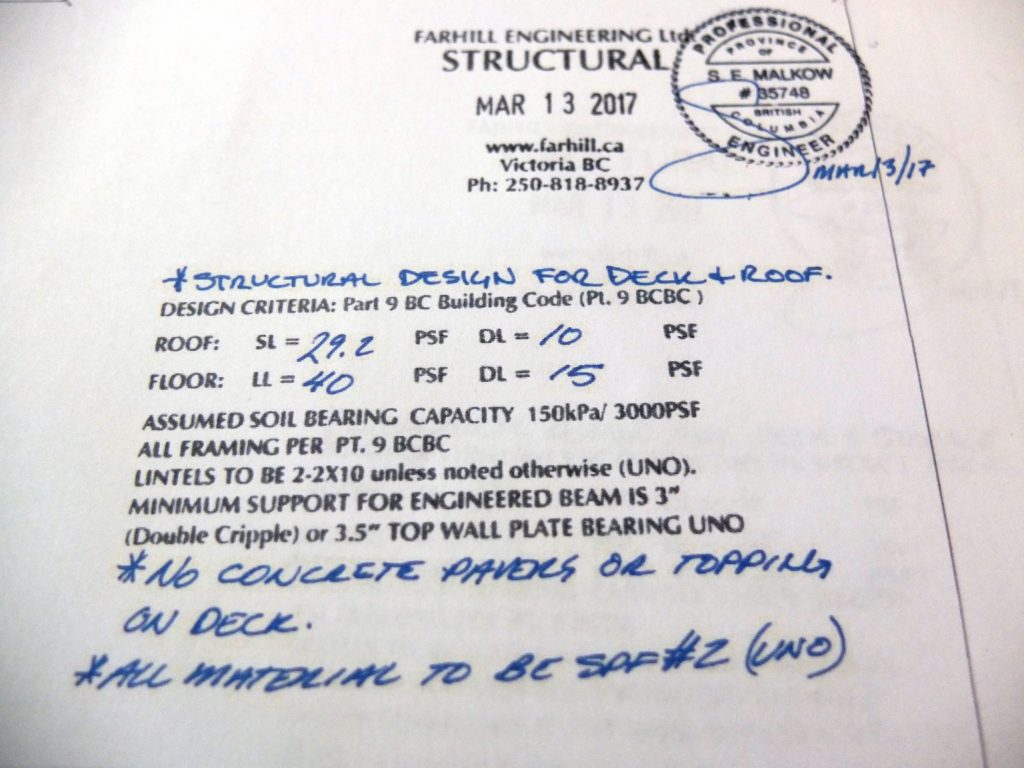 FARHILL ENGINEERING Ltd
STRUCTURAL
MAR 13 2017
www.farhill.ca
Victoria BC
Ph: 250-818-8937
PROFESSIONAL
PROVINCE
OF
S. E. MALKOW
# 35748
BRITISH
COLUMBIA
ENGINEER
MAR 13/17
*STRUCTURAL DESIGN FOR DECK + ROOF.
DESIGN CRITERIA: Part 9 BC Building Code (Pt. 9 BCBC )
ROOF: SL = 29.2 PSF DL = 10 PSF
FLOOR: LL = 40 PSF DL = 15 PSF
ASSUMED SOIL BEARING CAPACITY 150kPa/ 3000PSF
ALL FRAMING PER PT. 9 BCBC
LINTELS TO BE 2-2X10 unless noted otherwise (UNO).
MINIMUM SUPPORT FOR ENGINEERED BEAM IS 3"
(Double Cripple) or 3.5" TOP WALL PLATE BEARING UNO
*NO CONCRETE PAVERS OR TOPPING
ON DECK.
*ALL MATERIAL TO BE SPF #2 (UNO)